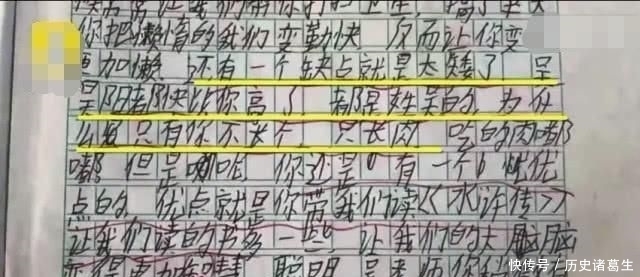 你把懒惰的我们变勤快 反而让你变
更加懒. 还有一个缺点就是太矮了 吴
昊阳都快比你高了, 都是姓吴的, 为什
么 只有你不长个, 只长肉, 吃的肉嘟
嘟 但是呢 你还是有一个小优
点的 优点就是你带我们读《水许传》
让我们读的书多一些 让我们的大脑
变得更加
快传号/历史诸葛生